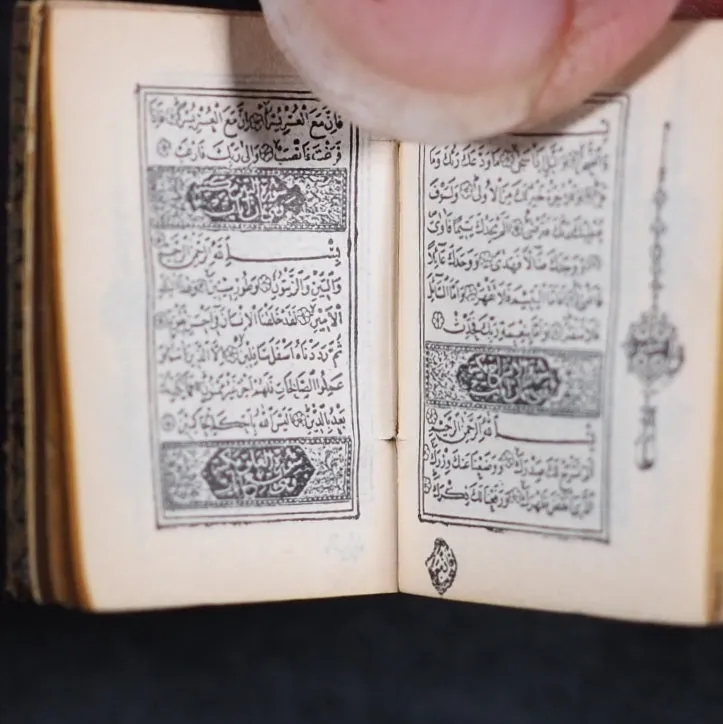 وَالضُّحٰى وَالَّيْلِ اِذَا سَجٰى مَا وَدَّعَكَ رَبُّكَ وَمَا
قَلٰى وَلَلْاٰخِرَةُ خَيْرٌ لَكَ مِنَ الْاُولٰى وَلَسَوْفَ
يُعْطِيكَ رَبُّكَ فَتَرْضٰى اَلَمْ يَجِدْكَ يَتِيمًا فَاٰوٰى
وَوَجَدَكَ ضَالًّا فَهَدٰى وَوَجَدَكَ عَائِلًا
فَاَغْنٰى فَاَمَّا الْيَتِيمَ فَلَا تَقْهَرْ وَاَمَّا السَّائِلَ
فَلَا تَنْهَرْ وَاَمَّا بِنِعْمَةِ رَبِّكَ فَحَدِّثْ
بِسْمِ اللّٰهِ الرَّحْمٰنِ الرَّحِيمِ
اَلَمْ نَشْرَحْ لَكَ صَدْرَكَ وَوَضَعْنَا عَنْكَ وِزْرَكَ
الَّذِي اَنْقَضَ ظَهْرَكَ وَرَفَعْنَا لَكَ ذِكْرَكَ
فَاِنَّ مَعَ الْعُسْرِ يُسْرًا اِنَّ مَعَ الْعُسْرِ يُسْرًا فَاِذَا
فَرَغْتَ فَانْصَبْ وَاِلٰى رَبِّكَ فَارْغَبْ
بِسْمِ اللّٰهِ الرَّحْمٰنِ الرَّحِيمِ
وَالتِّينِ وَالزَّيْتُونِ وَطُورِ سِينِينَ وَهٰذَا الْبَلَدِ
الْاَمِينِ لَقَدْ خَلَقْنَا الْاِنْسَانَ فِي اَحْسَنِ تَقْوِيمٍ
ثُمَّ رَدَدْنَاهُ اَسْفَلَ سَافِلِينَ اِلَّا الَّذِينَ اٰمَنُوا
وَعَمِلُوا الصَّالِحَاتِ فَلَهُمْ اَجْرٌ غَيْرُ مَمْنُونٍ فَمَا يُكَذِّبُكَ
بَعْدُ بِالدِّينِ اَلَيْسَ اللّٰهُ بِاَحْكَمِ الْحَاكِمِينَ